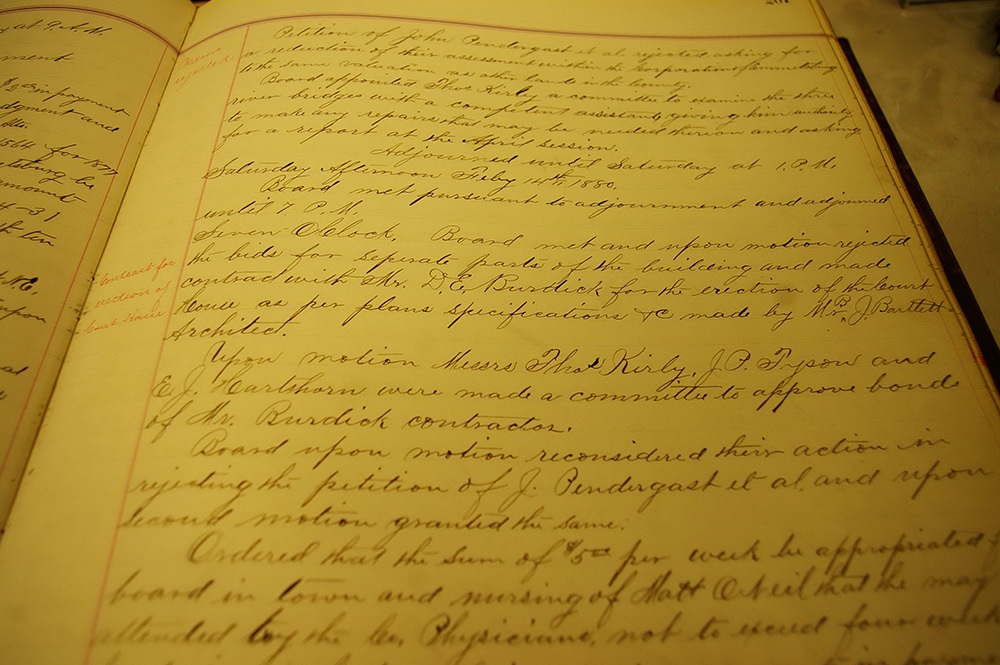 y at 9. A. M.
ment
in payment
dgment and
1564 for 1877
etsburg be
amount
4-31
ten
N.E.
upon
Petition of John Pendergast et al. rejected, asking for
a reduction of their assessment within the Corporation of Emmetsburg
to the same valuation as other lands in the County.
Board appointed Thos. Kirby a committee to examine the three
river bridges with a competent assistant, giving him authority
to make any repairs that may be needed thereon and asking
for a report at the April session.
Adjourned until Saturday at 1. P.M.
Saturday Afternoon Feby 14th 1880.
Board met pursuant to adjournment and adjourned
until 7. P.M.
Seven OClock. Board met and upon motion rejected
the bids for seperate parts of the building and made
contract with Mr. D.E. Burdick for the erection of the Court
House as per plans specifications &c made by Mr. B. J. Bartlett
Architect.
Upon motion Messrs Thos Kirby, J.P. Tyson and
E.J. Hartshorn were made a committee to approve bond
of Mr. Burdick contractor.
Board upon motion reconsidered their action in
rejecting the petition of J. Pendergast et al. and upon
second motion granted the same.
Ordered that the sum of $5 00 per week be appropriated f
board in town and nursing of Matt O Neil that he may
attended by the Co. Physician, not to exceed four week
rejected
Contract for
erection of
Court House